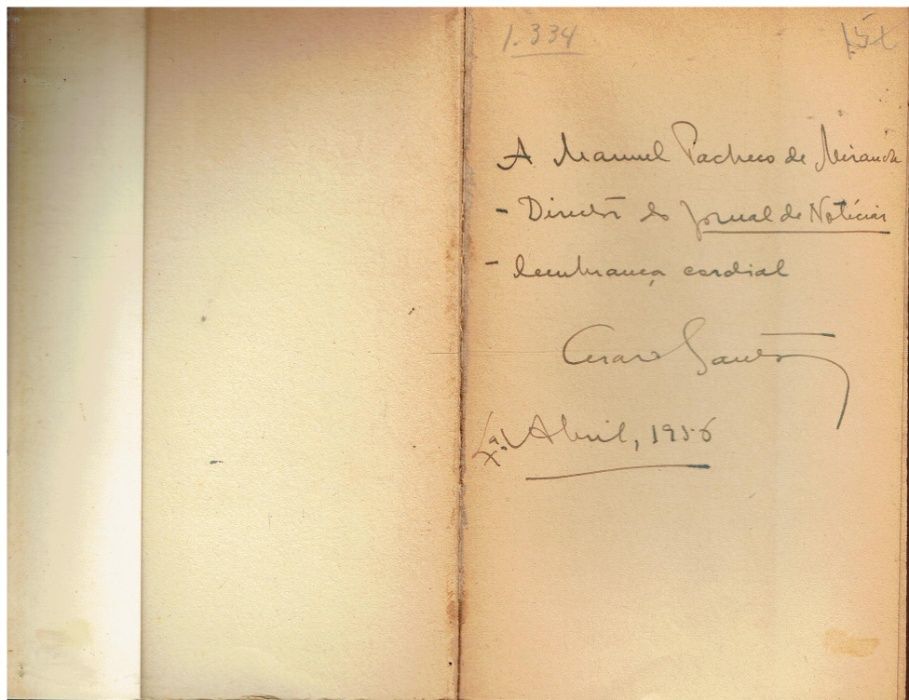 1.334
A Manuel Pacheco de Miranda
- Director do Jornal de Notícias
- lembrança cordial
Cesar Santos
Lxª. Abril, 1956